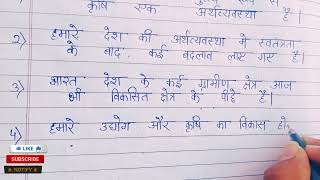 कृषि एक अर्थव्यवस्था है।
2) हमारे देश की अर्थव्यवस्था में स्वतंत्रता
के बाद कई बदलाव लाए गए है।
3) भारत देश के कई ग्रामीण क्षेत्र आज
भी विकसित क्षेत्र के पीछे है।
4) हमारे उद्योग और कृषि का विकास हो
LIKE
SUBSCRIBE
NOTIFY